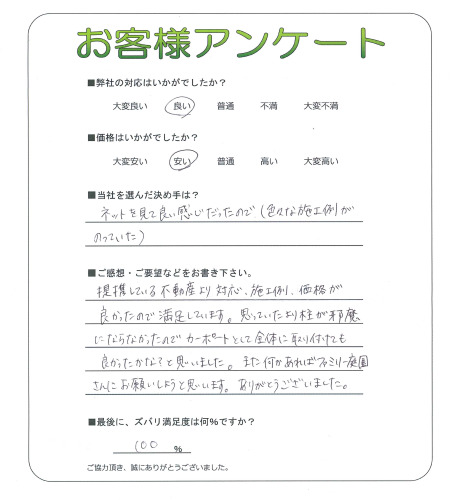 お客様アンケート
■弊社の対応はいかがでしたか？
大変良い 良い 普通 不満 大変不満
■価格はいかがでしたか？
大変安い 安い 普通 高い 大変高い
■当社を選んだ決め手は？
ネットを見て良い感じだったので（色々な施工例が
のっていた）
■ご感想・ご要望などをお書き下さい。
提携している不動産より対応、施工例、価格が
良かったので満足しています。思っていたより柱が邪魔
にならなかったのでカーポートとして全体に取り付けても
良かったかな？と思いました。また何かあればファミリー庭園
さんにお願いしようと思います。ありがとうございました。
■最後に、ズバリ満足度は何％ですか？
100 ％
ご協力頂き、誠にありがとうございました。